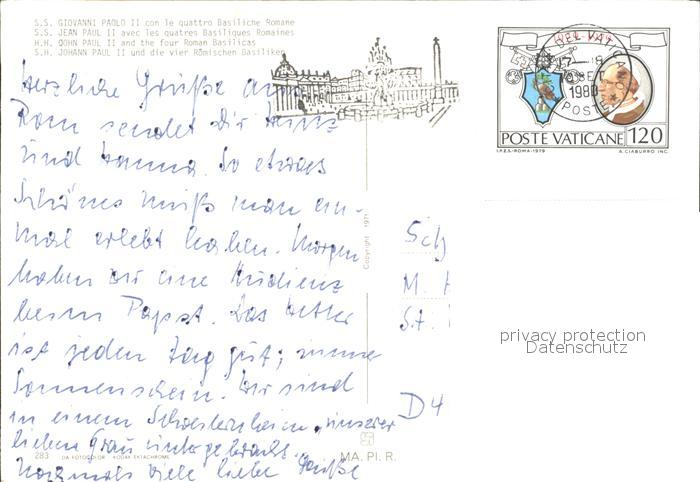 S.S. GIOVANNI PAOLO II con le quattro Basiliche Romane
S.S. JEAN PAUL II avec les quatres Basiliques Romaines
H.H. QOHN PAUL II and the four Roman Basilicas
S.H. JOHANN PAUL II und die vier Römischen Basiliken
Herzliche Grüße aus
Rom sendet dir
und Hanna. So etwas
Schönes muß man ein-
mal erlebt haben. Morgen
haben wir eine Audienz
beim Papst. Das Wetter
ist jeden Tag gut; immer
Sonnenschein. Wir sind
in einem Schwesternheim, unserer
lieben Frau untergebracht.
Nochmals viele liebe Grüße
283 DA FOTOCOLOR KODAK EKTACHROME
MA. PI. R.
Copyright 1971
POSTE VATICANE 120
I.P.Z.S.-ROMA-1979 A. CIABURRO INC.
1980
POSTE
Sch
M. H
St.
D4
privacy protection
Datenschutz